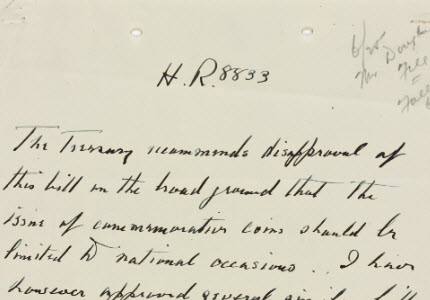 H.R. 8833
6/20
Mr
File
The Treasury recommends disapproval of
this bill on the broad ground that the
issue of commemorative coins should be
limited to national occasions.. I have
however approved several similar bill